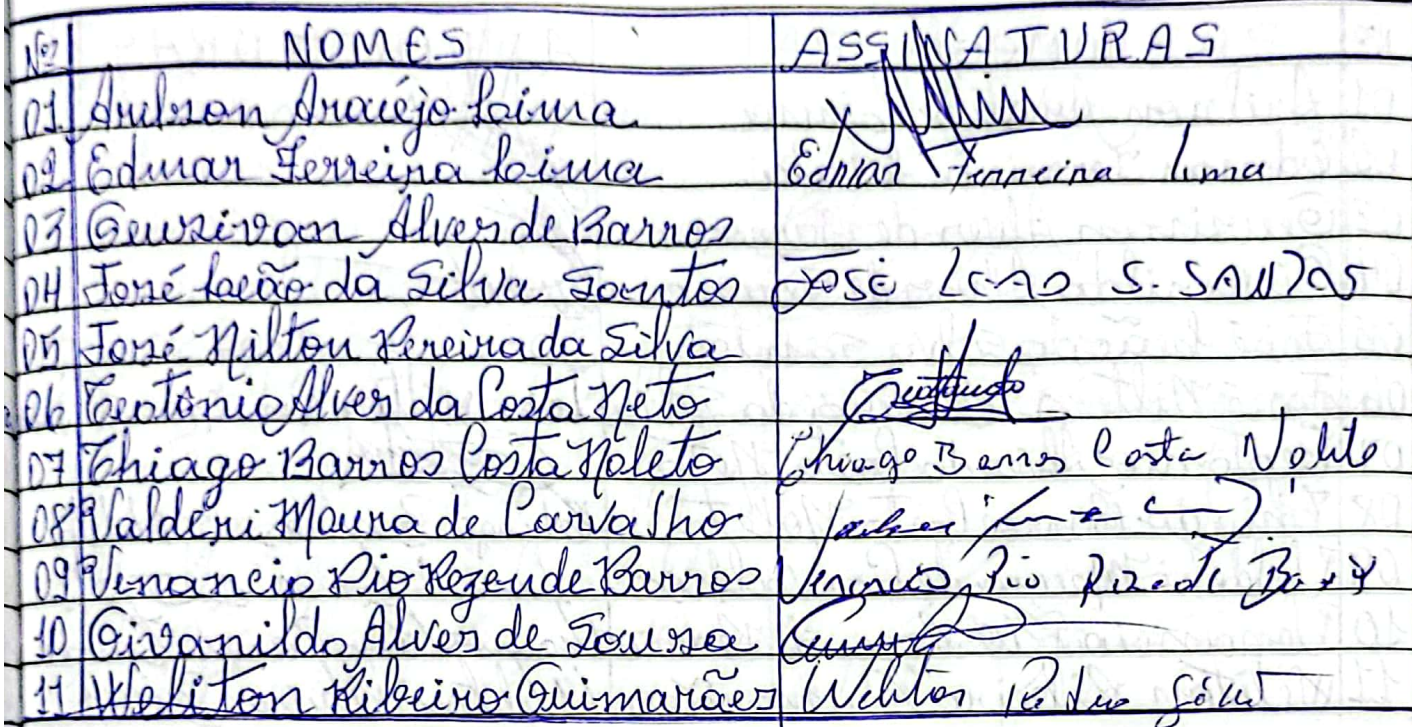 Nº NOMES ASSINATURAS
01 Arilson Araújo Lima
02 Edmar Ferreira Lima Edmar Ferreira Lima
03 Geuzivan Alves de Barros
04 José Leão da Silva Santos JOSÉ LEAO S. SANTOS
05 José Nilton Pereira da Silva
06 Teotônio Alves da Costa Neto
07 Thiago Barros Costa Noleto Thiago Barros Costa Noleto
08 Valderi Moura de Carvalho
09 Venancio Pio Rezende Barros Venancio Pio Rezende Barros
10 Givanildo Alves de Sousa
11 Weliton Ribeiro Guimarães Weliton